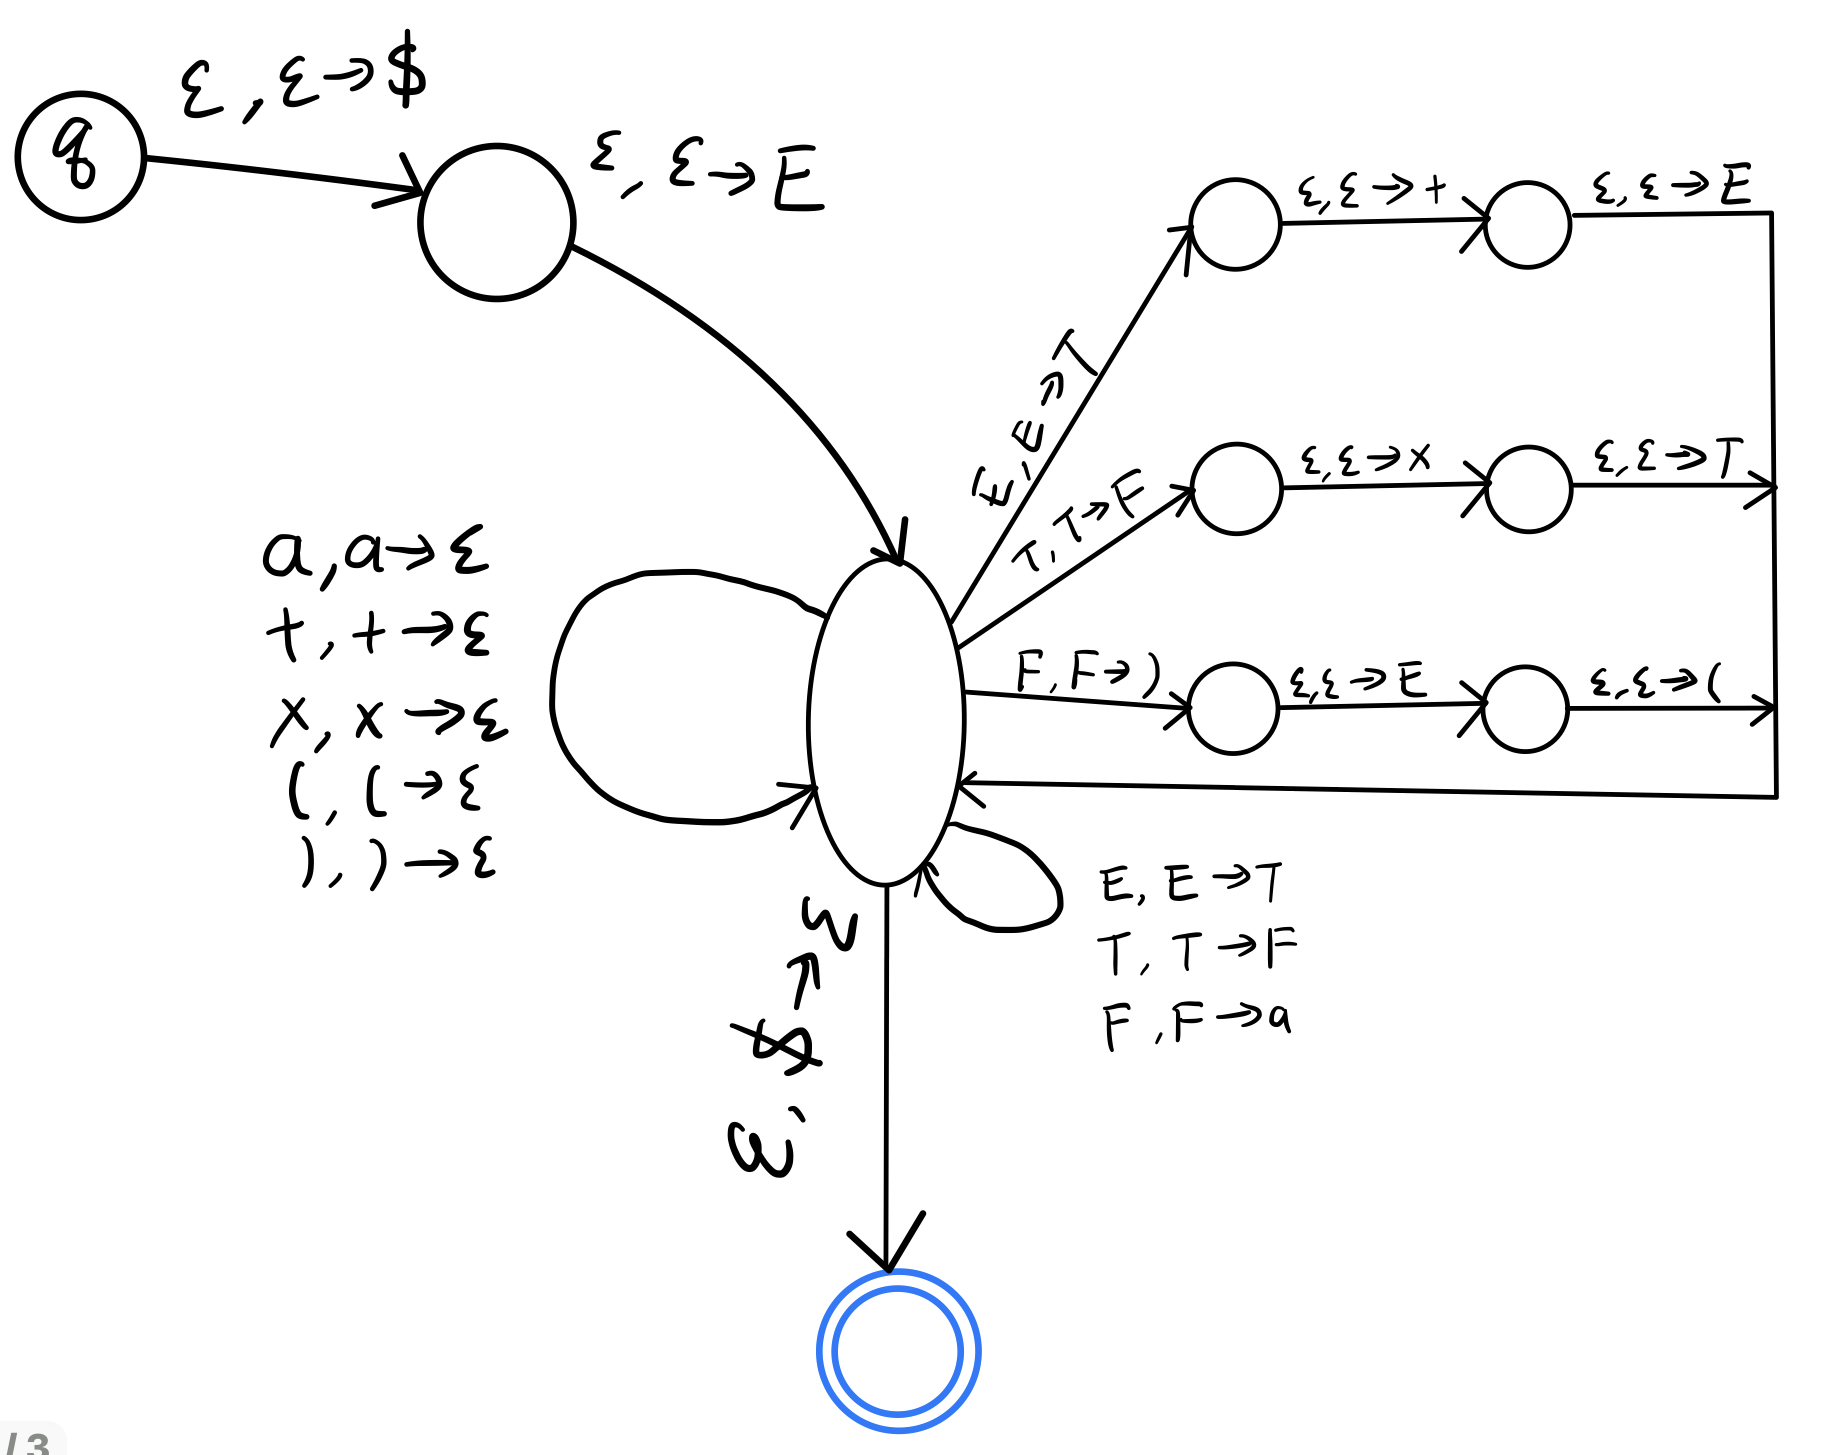 q
ε, ε→$
ε, ε→E
ε, ε→+
ε, ε→E
E, E→T
ε, ε→x
ε, ε→T
T, T→F
F, F→)
ε, ε→E
ε, ε→(
a, a→ε
+, +→ε
x, x→ε
(, (→ε
), )→ε
E, E→T
T, T→F
F, F→a
ε, $→ε
/ 3